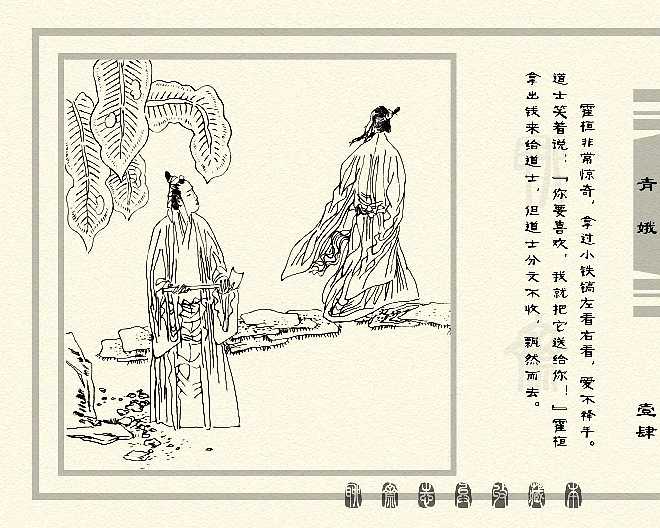 霍桓非常惊奇，拿过小铁镐左看右看，爱不释手。
道士笑着说：“你要喜欢，我就把它送给你！”霍桓
拿出钱来给道士，但道士分文不收，飘然而去。
青娥
壹肆
聊斋志异收藏本